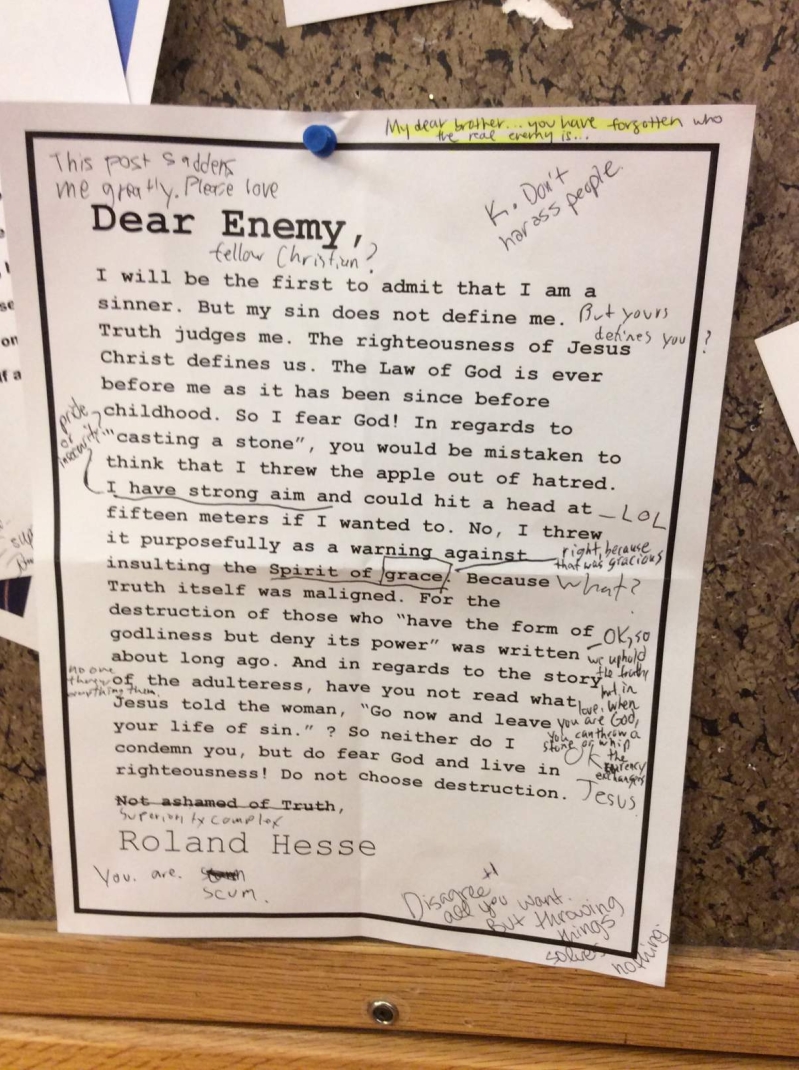 My dear brother... you have forgotten who
the real enemy is...
This post sadders
me greatly. Please love
K. Don't
harass people.
Dear Enemy,
fellow Christian?
I will be the first to admit that I am a
sinner. But my sin does not define me.
But yours
defines you?
Truth judges me. The righteousness of Jesus
Christ defines us. The Law of God is ever
before me as it has been since before
childhood. So I fear God! In regards to
pride
or
insecurity
"casting a stone", you would be mistaken to
think that I threw the apple out of hatred.
I have strong aim and could hit a head at
LOL
fifteen meters if I wanted to. No, I threw
it purposefully as a warning against
right, because
that was gracious
insulting the Spirit of grace. Because
What?
Truth itself was maligned. For the
destruction of those who "have the form of
godliness but deny its power" was written
about long ago. And in regards to the story
OK, so
we uphold
the truth
but in
love, when
you are God,
you can throw a
stone or whip
the
currency
exchangers
OK
Jesus
no one
threw
anything then.
of the adulteress, have you not read what
Jesus told the woman, "Go now and leave
your life of sin." ? So neither do I
condemn you, but do fear God and live in
righteousness! Do not choose destruction.
Not ashamed of Truth,
Superiority complex
Roland Hesse
You. are.
SCUM.
+1
Disagree
all you want.
But throwing
things
solves
nothing.